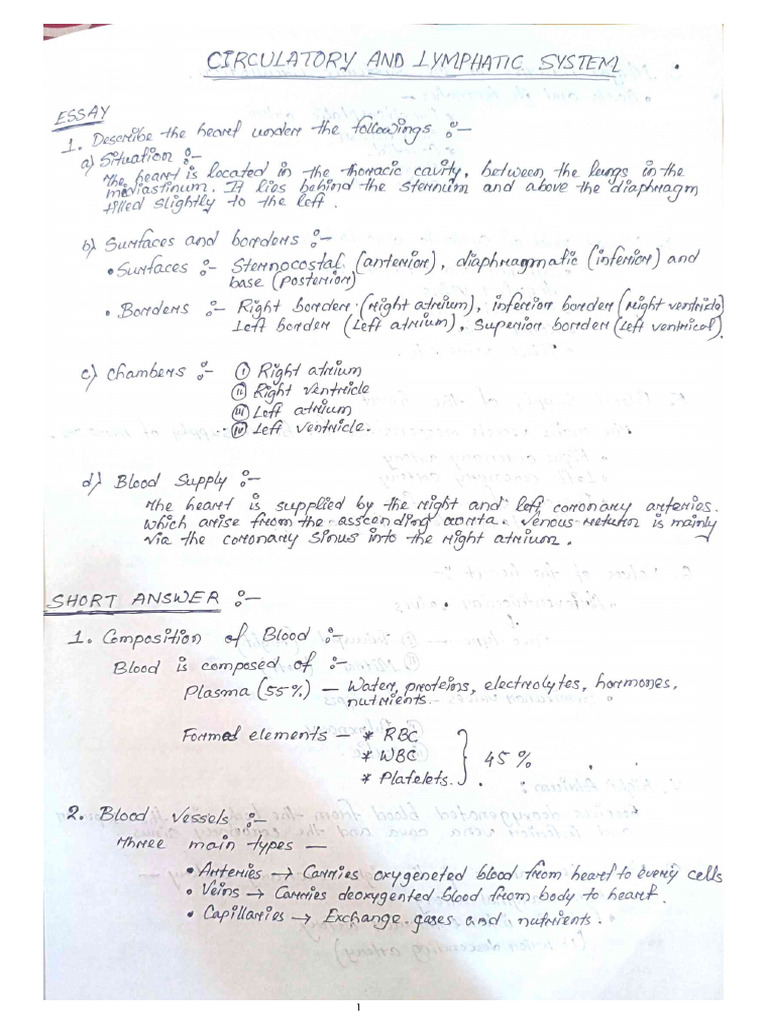 CIRCULATORY AND LYMPHATIC SYSTEM
ESSAY
1. Describe the heart under the followings :-
a) Situation :-
The heart is located in the thoracic cavity, between the lungs in the
mediastinum. It lies behind the sternum and above the diaphragm
tilled slightly to the left.
b) Surfaces and borders :-
• Surfaces :- Sternocostal (anterior), diaphragmatic (inferior) and
base (posterior)
• Borders :- Right border (right atrium), inferior border (right ventricle)
Left border (Left atrium), Superior border (Left ventrical).
c) Chambers :- (i) Right atrium
(ii) Right ventricle
(iii) Left atrium
(iv) Left ventricle.
d) Blood Supply :-
The heart is supplied by the right and left coronary arteries.
which arise from the asscending aorta. Venous return is mainly
via the coronary sinus into the right atrium.
SHORT ANSWER :-
1. Composition of Blood :-
Blood is composed of :-
Plasma (55%) — Water, proteins, electrolytes, hormones,
nutrients.
Formed elements — * RBC
* WBC
* Platelets. } 45 %
2. Blood Vessels :-
Three main types —
• Arteries → Carries oxygeneted blood from heart to every cells
• Veins → Carries deoxygented blood from body to heart.
• Capillaries → Exchange gases and nutrients.
1